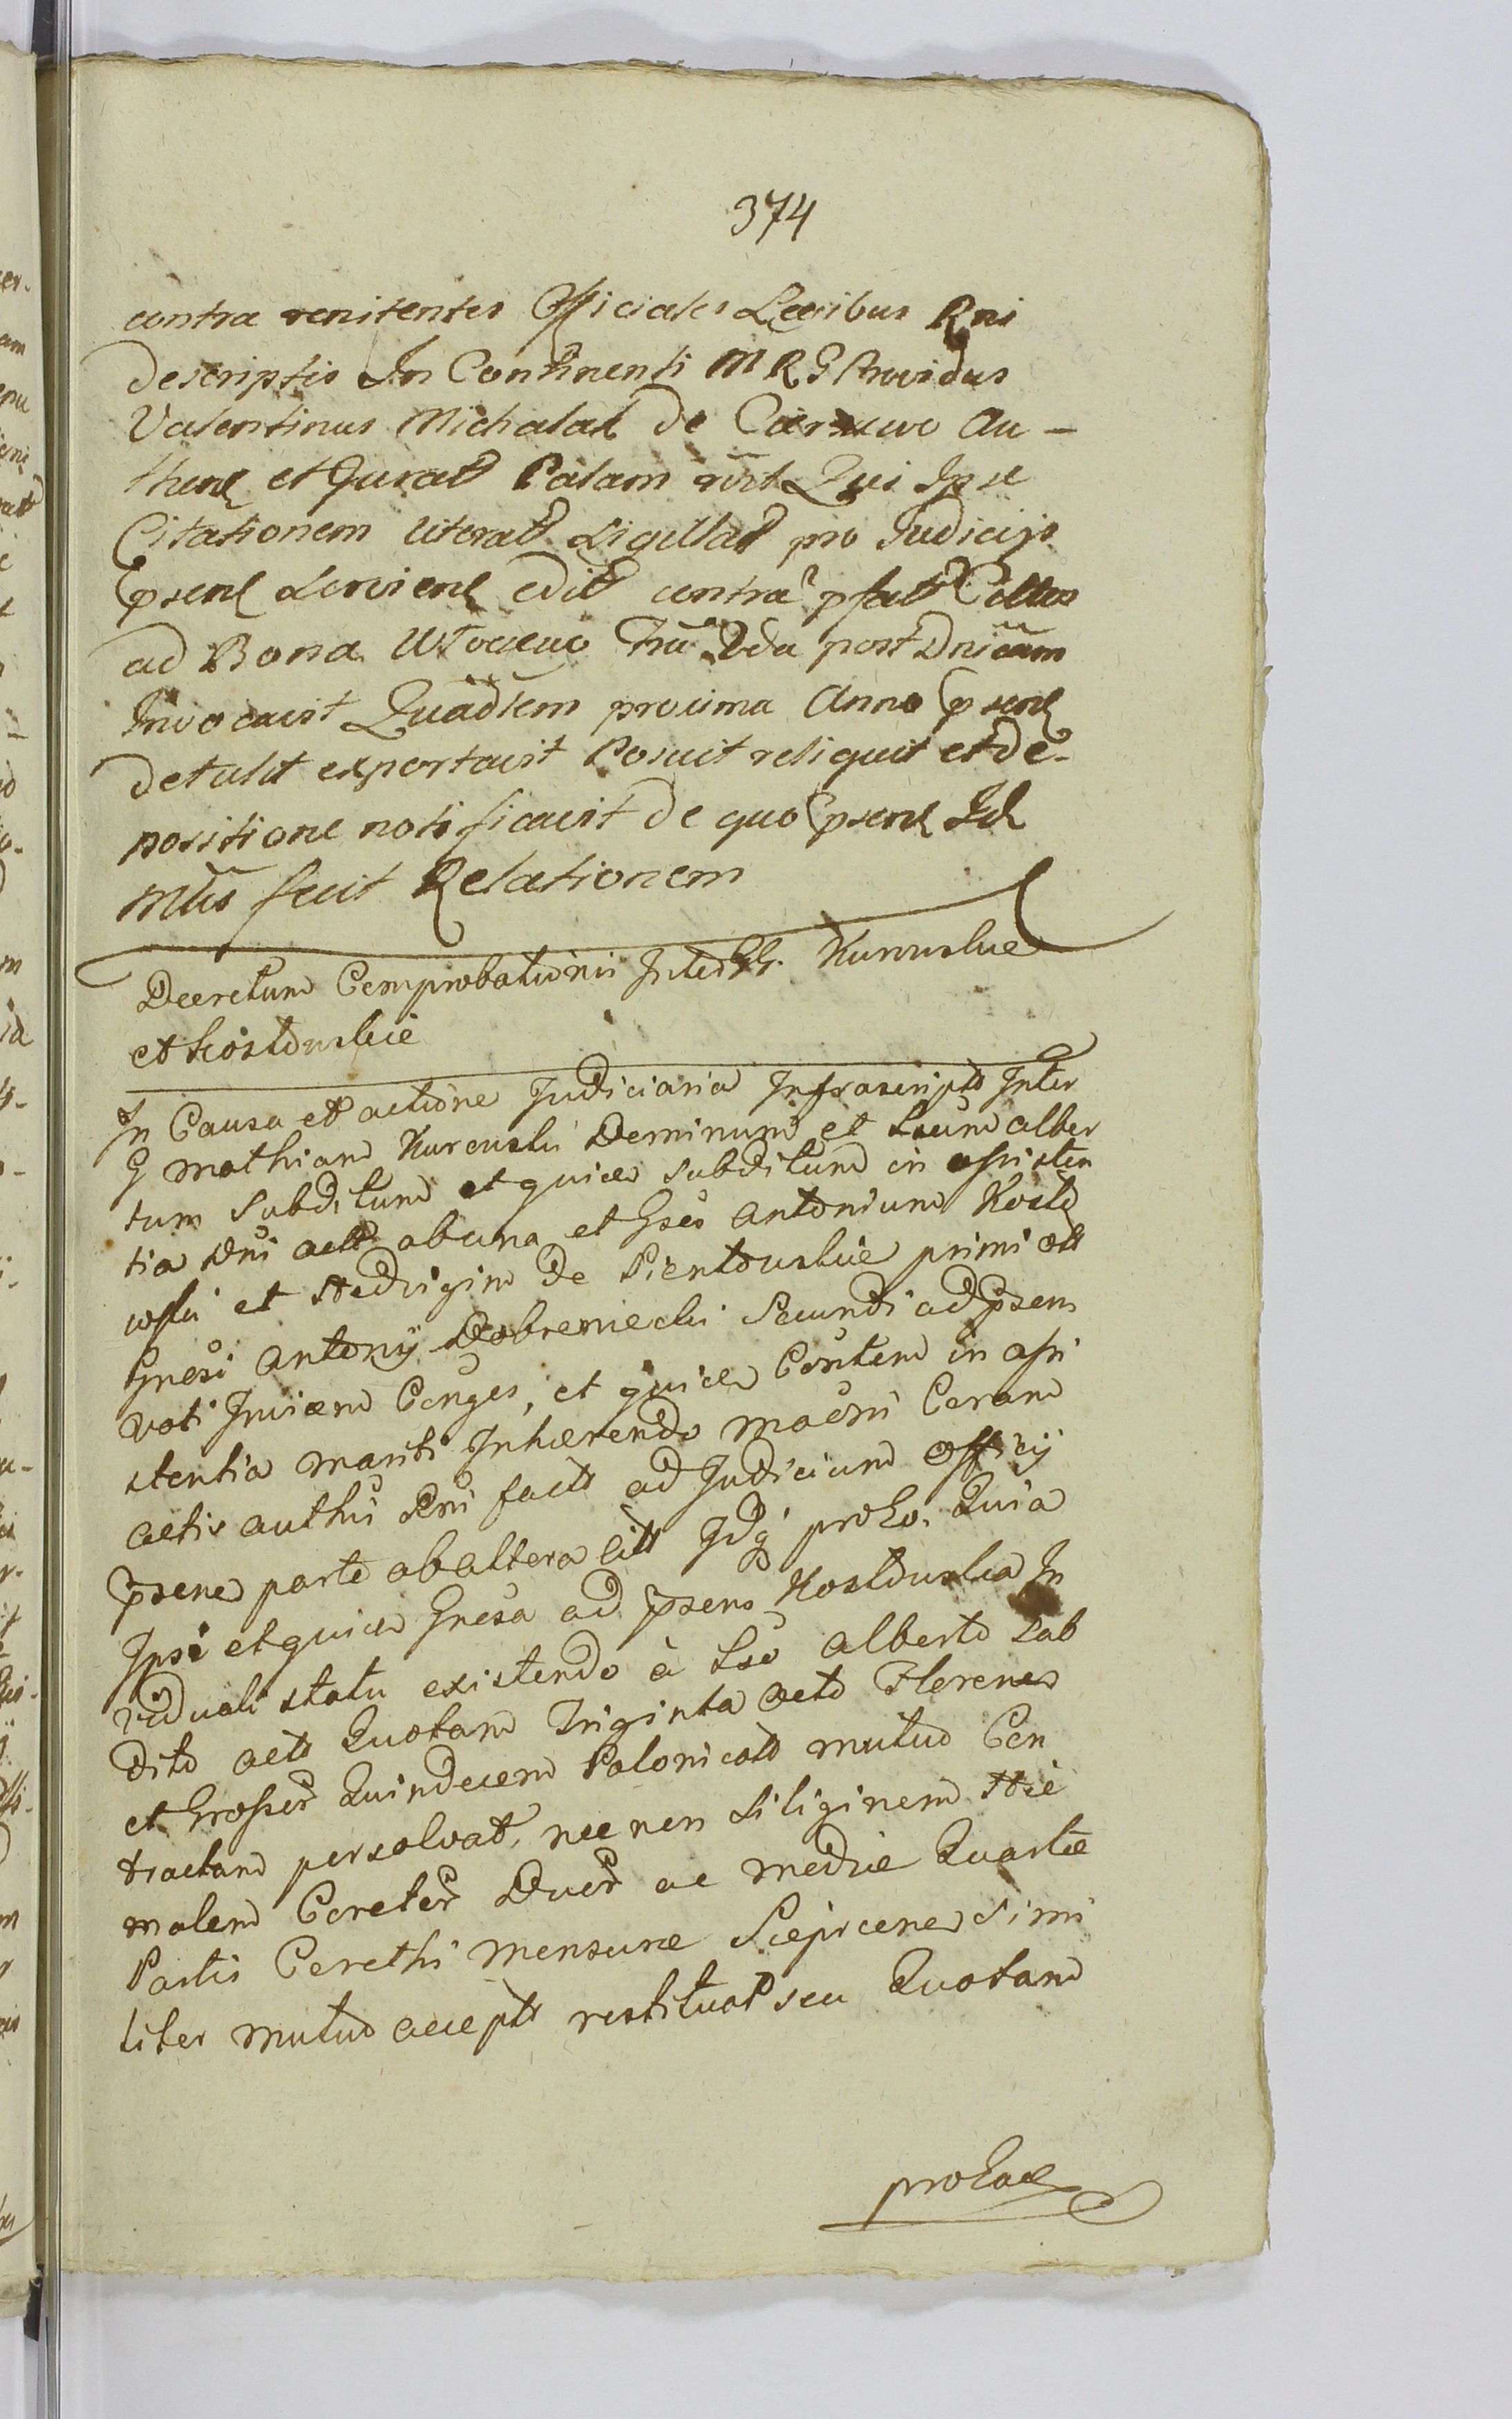 374
contra renitentes Officiales Legibus Rni
descriptis In Continenti M R G Providus
Valentinus Michalak de au-
then et Jurat Palam rūt Qui Ipse
Citationem literat Sigillat pro Judicijs
psent Servient edit contra pfat Cittos
ad Bona Wtociewo Fria 2da post Dnicam
Invocavit Quadlem proxima Anno psent
detulit exportavit Posuit reliquit et de-
positione notificavit de quo psent Id
Mlis fecit Relationem
Decretum Comprobationis Inter GG. Kurowskie
et Kostowskie
In Causa et actione Judiciaria Infrascript Inter
G Mathiam Kurowski Dominum et Lum Alber
tum Subditum et quidem Subditum in assisten
tia Dni act abuna et Gsos Antonium Kosto
wski et Hedvigim de Pientowskie primi ott
Gnesi Antonij Dobrzeniecki Secundi ad psens
voti Invicem Conges, et quidem Contem in assi
stentia mariti Inhaerendo Coram
actis authis Dni fact ad Judicium Officij
psens parte ab altera citt Idq proEo. Quia
Ipsa et quidem Gnesa ad psens Kostowska In
viduali statu existendo à Lso Alberto Sub
dito acto Quotam Triginta octo Florenos
et Grossos Quindecem Polonicat mutuo Con
tractam persolvat, nec non Siliginem Hie
malem Coretos Duos ac mediae Quartae
Partis Corethi mensurae simi
liter mutuo accept restituat seu Quotam
proEad